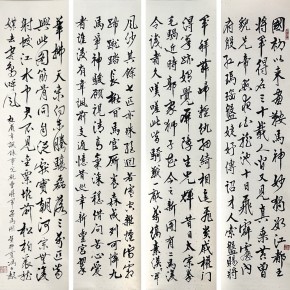 國初以來畫鞍馬神妙獨數江都王
將軍得名三十載人間又見真乘黃曾
貌先帝照夜白龍池十日飛霹靂內
府殷紅瑪瑙盤婕妤傳詔才人索盤賜將
軍拜舞歸輕紈細綺相追飛貴戚權門
得筆跡始覺屏障生光輝昔日太宗拳
毛騧近時郭家獅子花今之新圖有二馬復
令識者久嘆嗟此皆騎戰一敵萬縞素漠漠開
風沙其餘七匹亦殊絕迥若寒空雜煙雪霜
蹄蹴踏長楸間馬官廝養森成列可憐九
馬爭神駿顧視清高氣深穩借問苦心愛
者誰後有韋諷前支遁憶昔巡幸新豐宮翠
華拂天來向東騰驤磊落三萬匹皆
與此圖筋骨同自從獻寶朝河宗無復
射蛟江水中君不見金粟堆前松柏裏龍
媒去盡鳥呼風